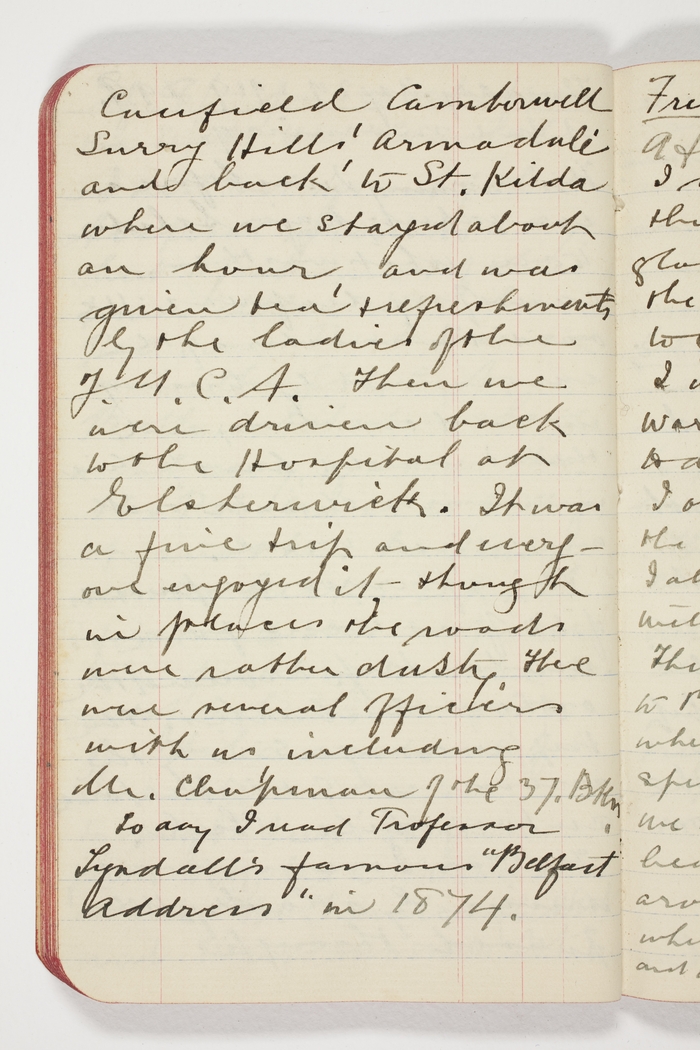 Caufield Camberwell
Surry Hills' Armadale'
and back' to St. Kilda
where we stayed about
an hour and was
given tea' & refreshments
by the ladies of the
Y.M.C.A. Then we
were driven back
to the Hospital at
Elsterwick. It was
a fine trip and every-
one enjoyed it, though
in places the roads
were rather dusty. There
were several officers
with us including
Mr. Chapman of the 37. Bttn.
Today I read Professor
Tyndall's famous "Belfast
Address" in 1874.
I
the
the
I
I
the
to
we
and